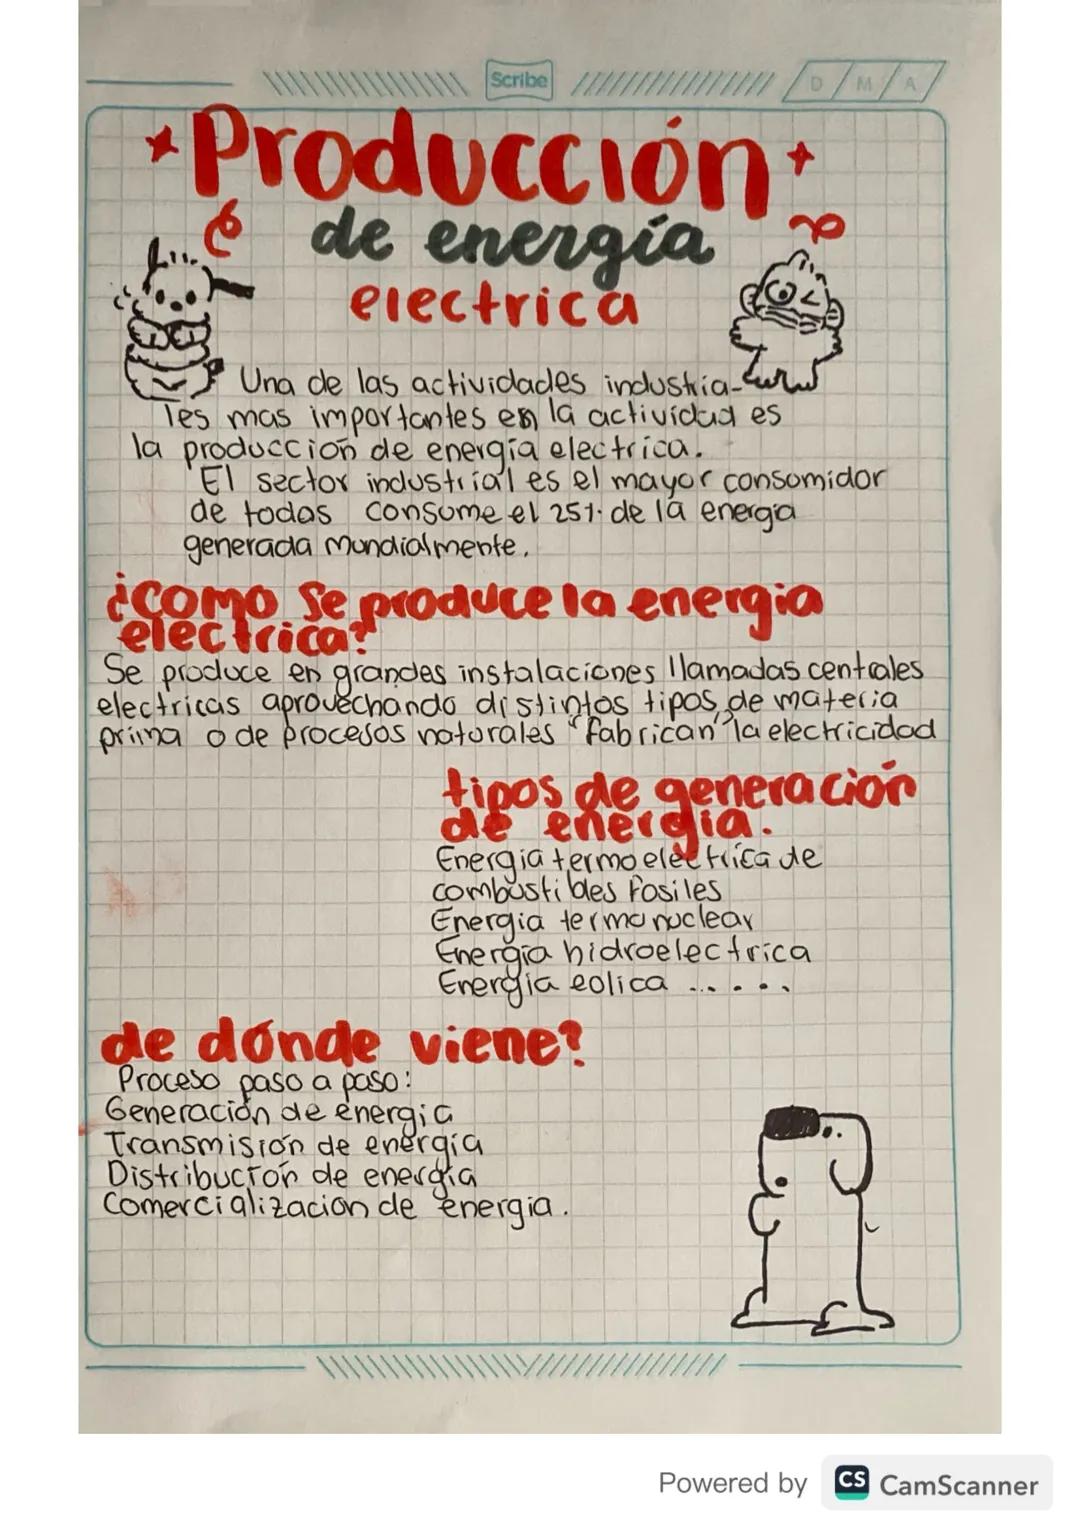 Scribe
D / M / A
Producción
de energía
electrica
Una de las actividades industria-
les mas importantes en la actividad es
la producción de energía electrica.
El sector industrial es el mayor consumidor
de todas consume el 25% de la energa
generada mundialmente.
¿Como se produce la energia
electrica?
Se produce en grandes instalaciones llamadas centrales
electricas aprovechando distintos tipos de materia
prima o de procesos naturales "fabrican" la electricidad
tipos de generación
de energia.
Energia termoelectrica de
combustibles fosiles
Energia termonuclear
Energia hidroelectrica
Energia eolica ......
de dónde viene?
Proceso paso a paso:
Generación de energia
Transmisión de energía
Distribución de energia
Comercialización de energia.
Powered by CS CamScanner